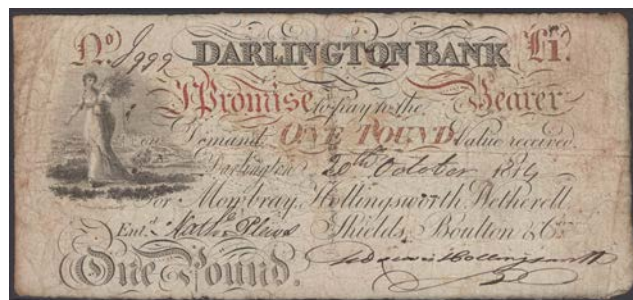 No) J999 DARLINGTON BANK £1.
I Promise to pay to the Bearer
on Demand ONE POUND Value received.
Darlington 20th October 1814
For Mowbray, Hollingsworth, Wetherell
Ent.d Shields, Boulton & Co.
One Pound. Hollingsworth